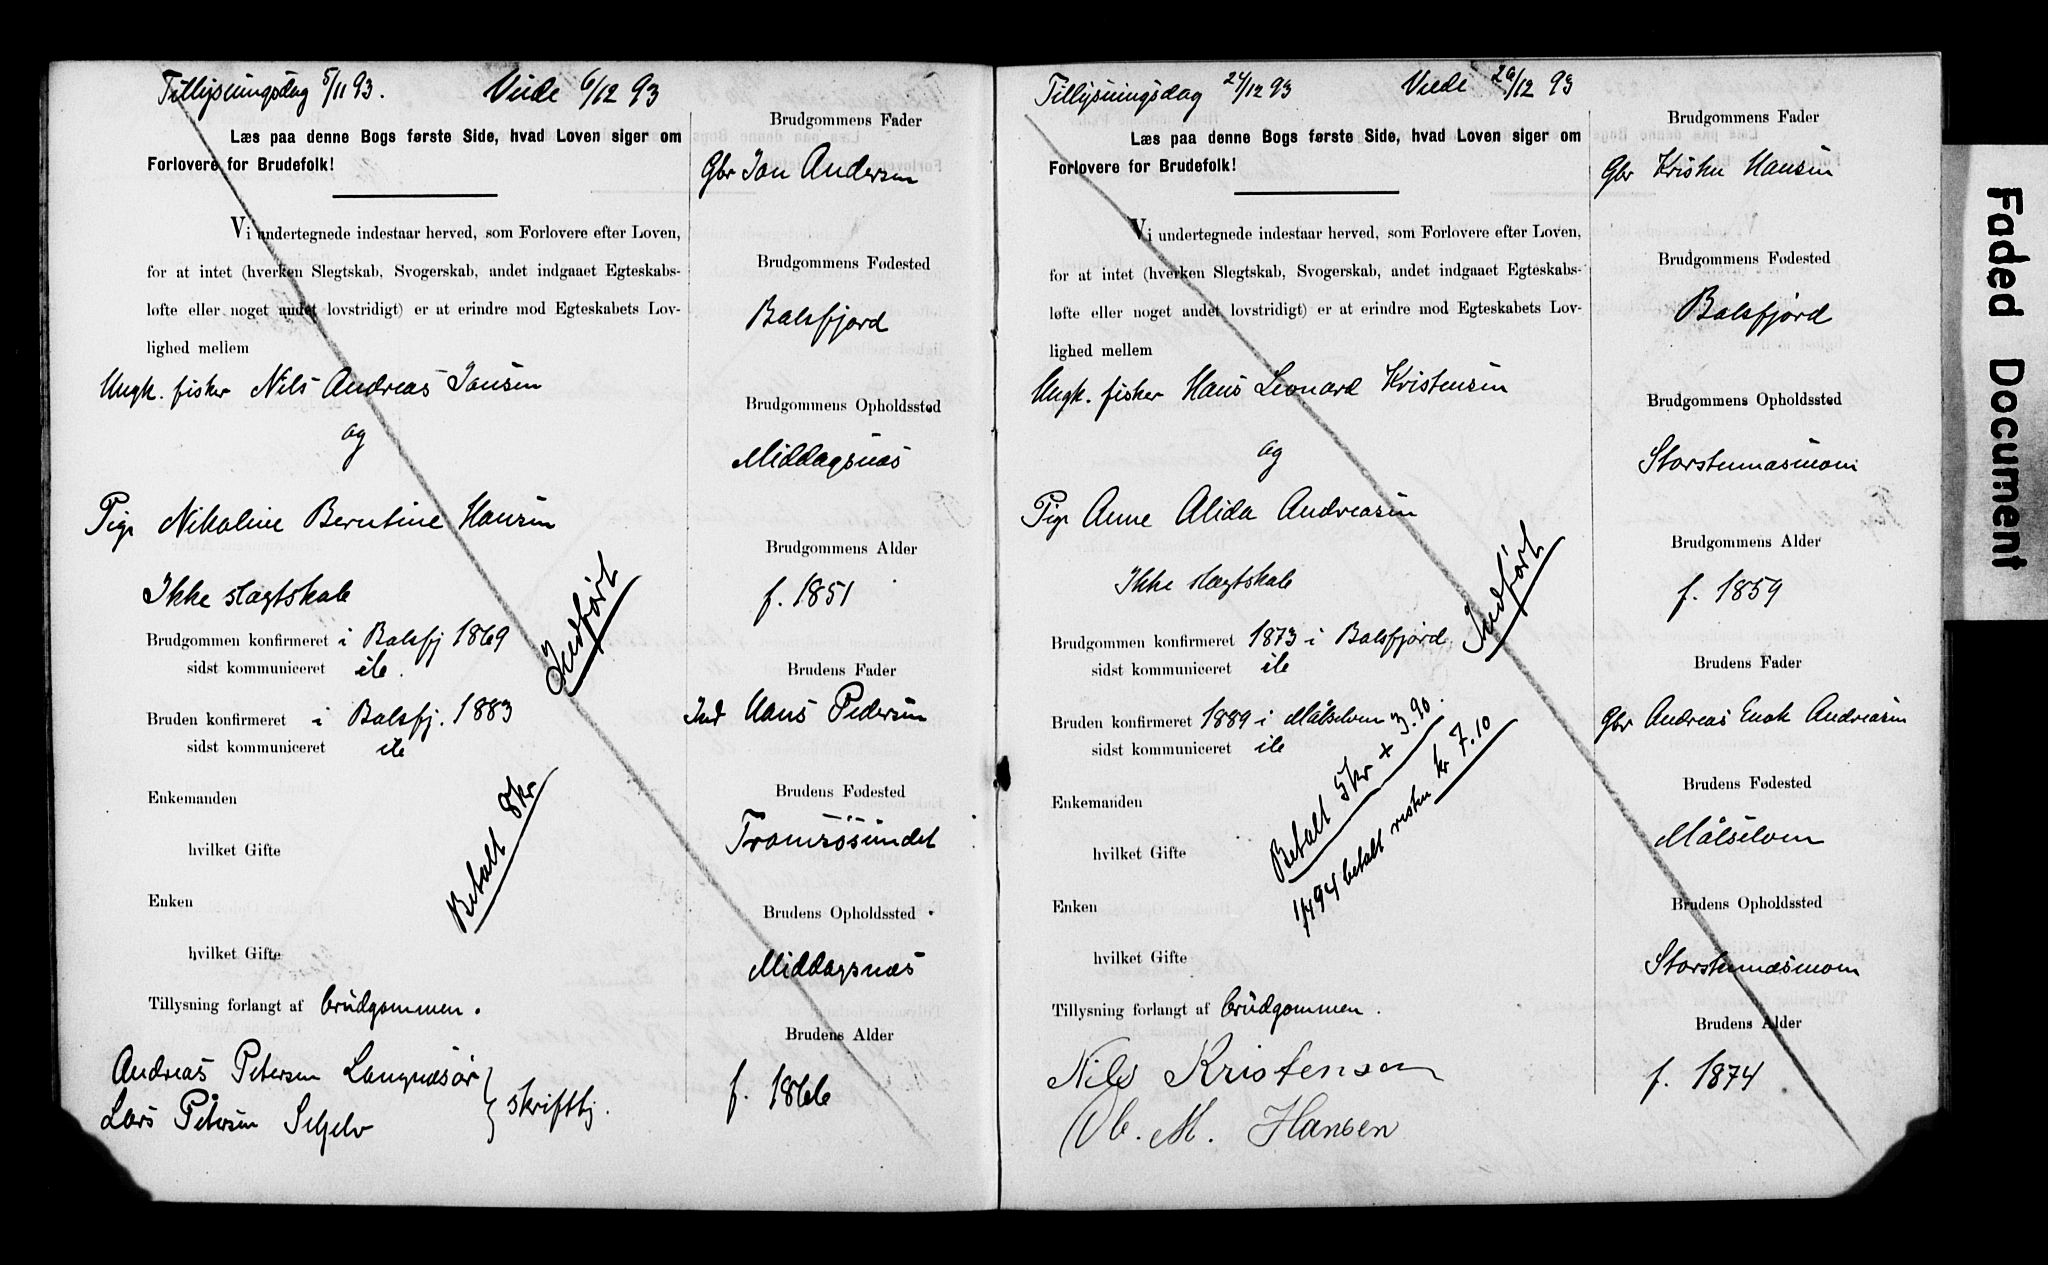 Tillysningsdag 5/11 93. Viede 6/12 93
Læs paa denne Bogs første Side, hvad Loven siger om
Forlovere for Brudefolk!
Vi undertegnede indestaar herved, som Forlovere efter Loven,
for at intet (hverken Slegtskab, Svogerskab, andet indgaaet Egteskabs-
løfte eller noget andet lovstridigt) er at erindre mod Egteskabets Lov-
lighed mellem
Ungk. fisker Nils Andreas Jansen
og
Pige Nikoline Berntine Hansen
Ikke slægtskab
Brudgommen konfirmeret i Balsfj 1869
sidst kommuniceret ile.
Bruden konfirmeret i Balsfj. 1883
sidst kommuniceret ile
Indført
Enkemanden
hvilket Gifte
Enken
hvilket Gifte
Betalt 8 kr
Tillysning forlangt af brudgommen.
Andreas Petersen Langnæsør
Lars Petersen Seljelv
skriftlj.
Brudgommens Fader
Gbr Jan Andersen
Brudgommens Fødested
Balsfjord
Brudgommens Opholdssted
Middagsnæs
Brudgommens Alder
f. 1851
Brudens Fader
Ind Hans Pedersen
Brudens Fødested
Tromsøsundet
Brudens Opholdssted
Middagsnæs
Brudens Alder
f. 1866
Tillysningsdag 24/12 93 Viede 29/12 93
Læs paa denne Bogs første Side, hvad Loven siger om
Forlovere for Brudefolk!
Vi undertegnede indestaar herved, som Forlovere efter Loven,
for at intet (hverken Slegtskab, Svogerskab, andet indgaaet Egteskabs-
løfte eller noget andet lovstridigt) er at erindre mod Egteskabets Lov-
lighed mellem
Ungk. fisker Hans Leonard Kristensen
og
Pige Anne Alida Andreasen
Ikke slægtskab
Brudgommen konfirmeret 1873 i Balsfjord
sidst kommuniceret ile
Bruden konfirmeret 1889 i Målselven
sidst kommuniceret ile
Indført
Enkemanden
hvilket Gifte
Enken
hvilket Gifte
Betalt 5 kr + 3.90.
1/4 94 betalt resten kr 7.10
Tillysning forlangt af brudgommen.
Nils Kristensen
Ole. M. Hansen
Brudgommens Fader
Gbr Kristen Hansen
Brudgommens Fødested
Balsfjord
Brudgommens Opholdssted
Storstennæsmoen
Brudgommens Alder
f. 1859
Brudens Fader
Gbr Andreas Enok Andreasen
Brudens Fødested
Målselven
Brudens Opholdssted
Storstennæsmoen
Brudens Alder
f. 1874
Faded Document